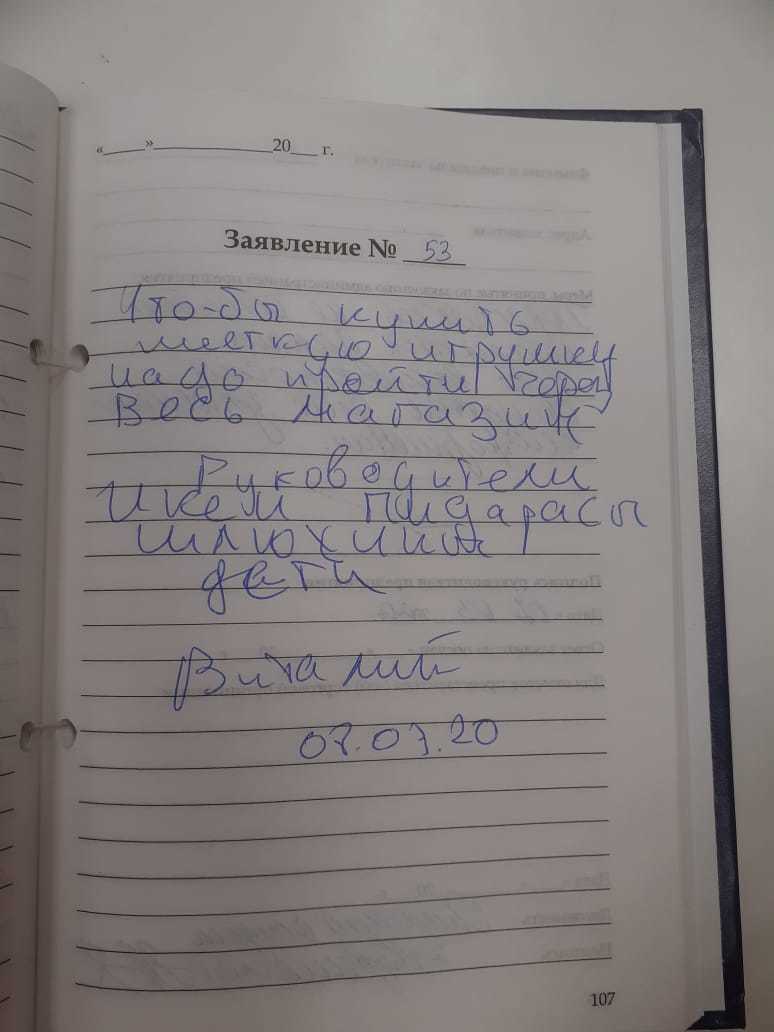 «____»______________20___ г.
Заявление № 53
Что-бы купить
мягкую игрушку
надо пройти через
весь магазин
Руководители
Икеи пидарасы
шлюхины
дети
Виталий
07.07.20
107